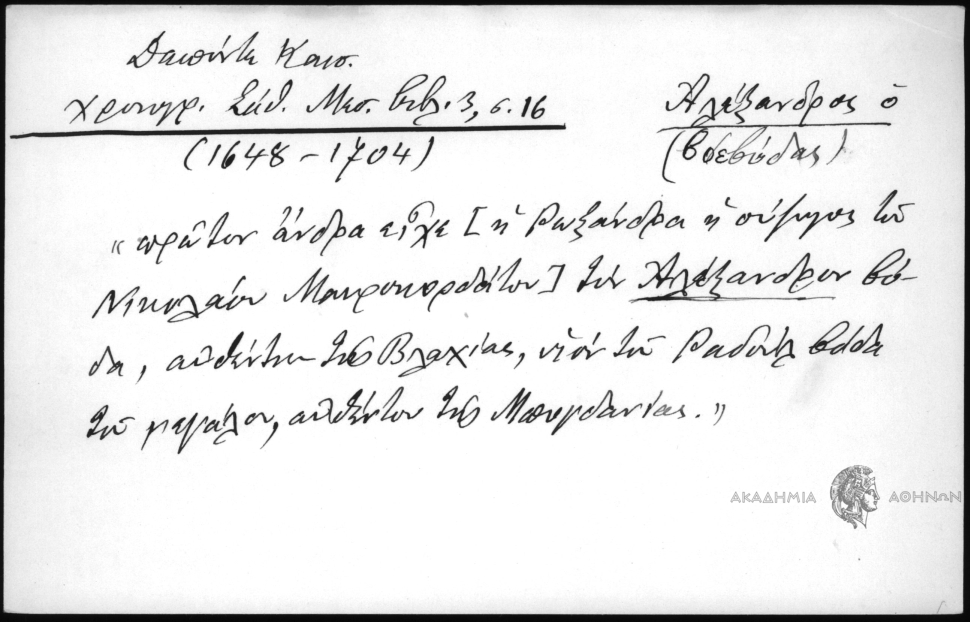 Δαπόντε Καισ.
χρονογρ. Σάθ. Μεσ. βιβλ. 3, σ. 16
(1648-1704)
Ἀλέξανδρος ὁ
(βοεβόδας)
«πρῶτον ἄνδρα εἶχε [ἡ Ρωξάνδρα ἡ σύζυγος τοῦ
Νικολάου Μαυροκορδάτου] τὸν Ἀλέξανδρον βό-
δα, αὐθέντην τῆς Βλαχίας, υἱὸν τοῦ Ραδοὺλ βόδα
τοῦ μεγάλου, αὐθέντου τῆς Μπογδανίας.»
ΑΚΑΔΗΜΙΑ ΑΘΗΝΩΝ